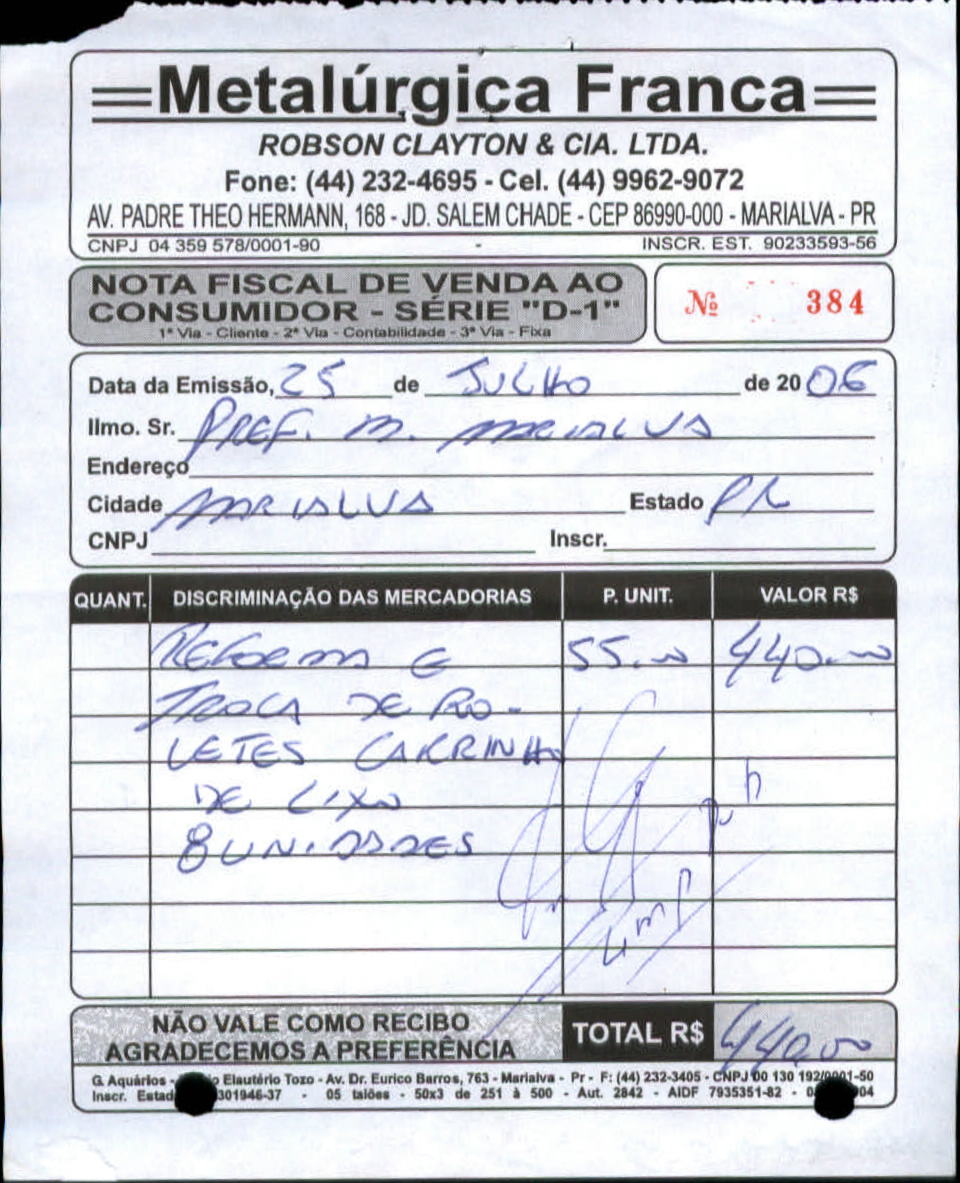 Metalúrgica Franca
ROBSON CLAYTON & CIA. LTDA.
Fone: (44) 232-4695 - Cel. (44) 9962-9072
AV. PADRE THEO HERMANN, 168 - JD. SALEM CHADE - CEP 86990-000 - MARIALVA - PR
CNPJ 04 359 578/0001-90 - INSCR. EST. 90233593-56
NOTA FISCAL DE VENDA AO
CONSUMIDOR - SÉRIE "D-1"
1ª Via - Cliente - 2ª Via - Contabilidade - 3ª Via - Fixa
Nº 384
Data da Emissão, 25 de JULHO de 2006
Ilmo. Sr. PREF. M. MARIALVA
Endereço
Cidade MARIALVA Estado PR
CNPJ Inscr.
QUANT. DISCRIMINAÇÃO DAS MERCADORIAS P. UNIT. VALOR R$
REFORMA E 55.00 440.00
TROCA DE RO-
LETES CARRINHO
DE LIXO
8 UNIDADES
NÃO VALE COMO RECIBO
AGRADECEMOS A PREFERÊNCIA
TOTAL R$ 440,00
G. Aquários - Elautério Tozo - Av. Dr. Eurico Barros, 763 - Marialva - Pr - F: (44) 232-3405 - CNPJ 00 130 192/0001-50
Inscr. Estad 301946-37 - 05 talões - 50x3 de 251 à 500 - Aut. 2842 - AIDF 7935351-82 - 04